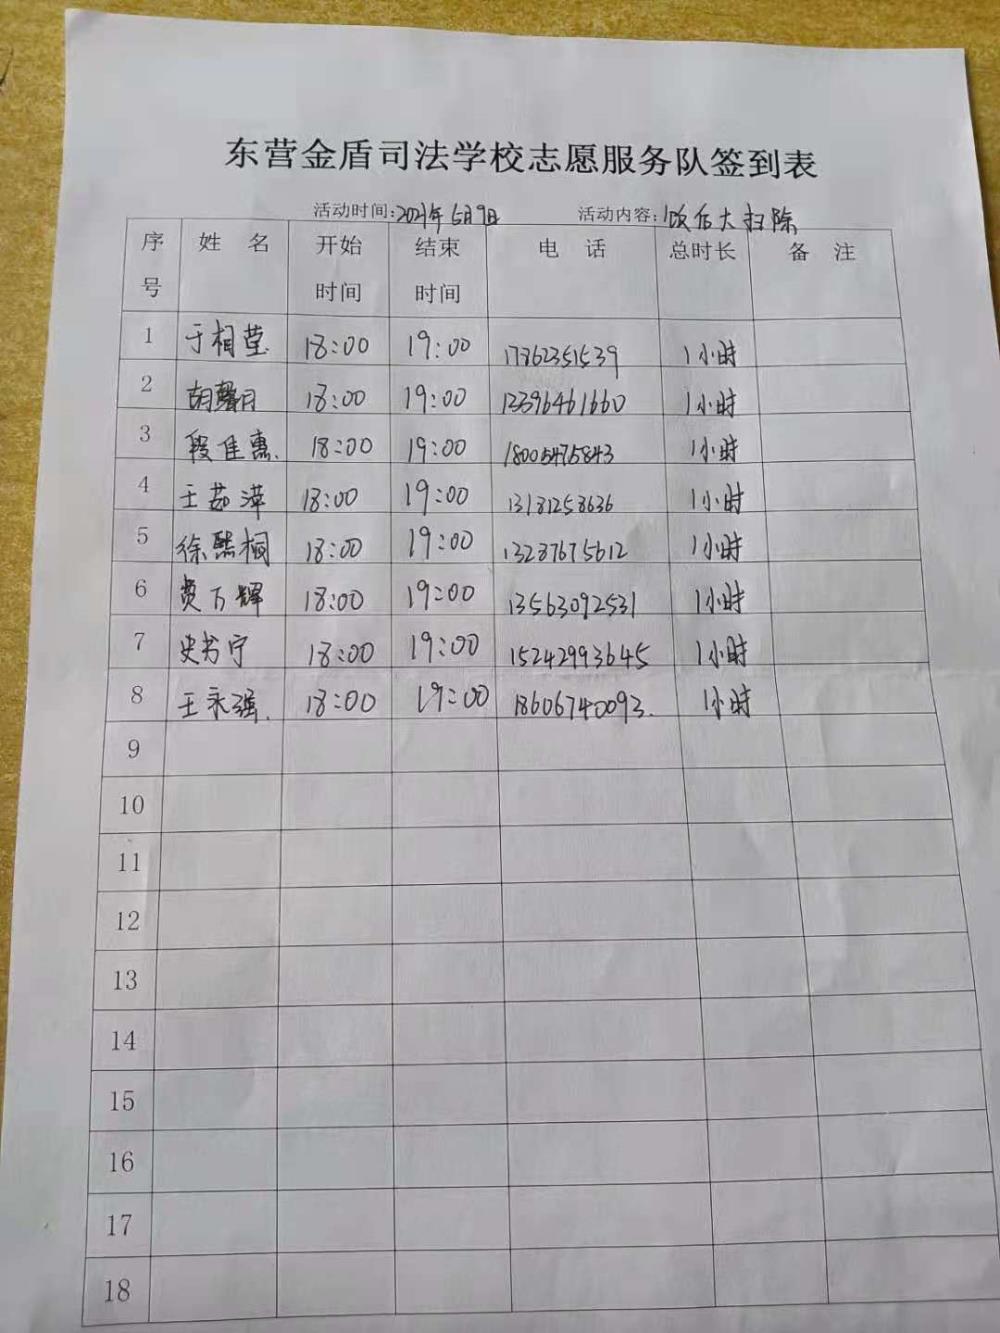 东营金盾司法学校志愿服务队签到表
活动时间:2021年5月9日 活动内容:饭后大扫除
序号 姓 名 开始时间 结束时间 电 话 总时长 备 注
1 于相莹 18:00 19:00 17862351539 1小时
2 胡馨月 18:00 19:00 13396461660 1小时
3 段佳惠. 18:00 19:00 18005475843 1小时
4 王茹萍 18:00 19:00 13181258636 1小时
5 徐熙桐 18:00 19:00 13287675612 1小时
6 费万辉 18:00 19:00 13563092531 1小时
7 史书宁 18:00 19:00 15242993645 1小时
8 王永强. 18:00 19:00 18606740093. 1小时
9
10
11
12
13
14
15
16
17
18